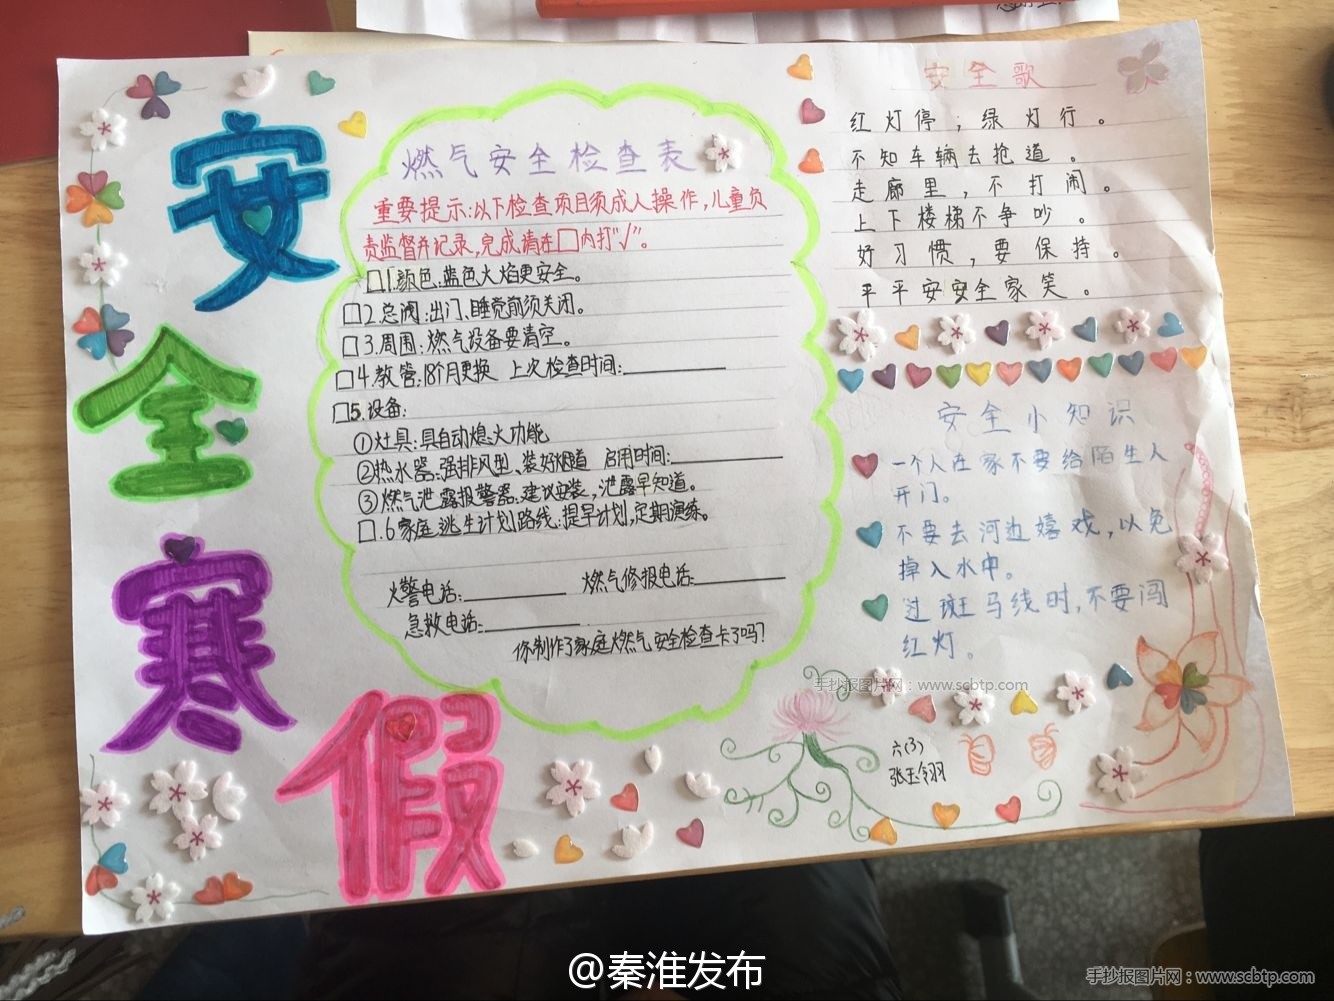 安全寒假
燃气安全检查表
重要提示:以下检查项目须成人操作,儿童负
责监督并记录,完成请在□内打"√"。
□1.颜色:蓝色火焰更安全。
□2.总阀:出门、睡觉前须关闭。
□3.周围:燃气设备要清空。
□4.教管:18个月更换 上次检查时间:
□5.设备:
①灶具:具自动熄火功能
②热水器:强排风型、装好烟道 启用时间:
③燃气泄露报警器:建议安装,泄露早知道。
□.6家庭逃生计划路线:提早计划,定期演练。
火警电话: 燃气修报电话:
急救电话:
你制作了家庭燃气安全检查卡了吗?
安全歌
红灯停;绿灯行。
不知车辆去抢道。
走廊里,不打闹。
上下楼梯不争吵。
好习惯,要保持。
平平安安全家笑。
安全小知识
一个人在家不要给陌生人
开门。
不要去河边嬉戏,以免
掉入水中。
过斑马线时,不要闯
红灯。
手抄报图片网:www.scbtp.com
六(3)
张玉翎
@秦淮发布
手抄报图片网:www.scbtp.com